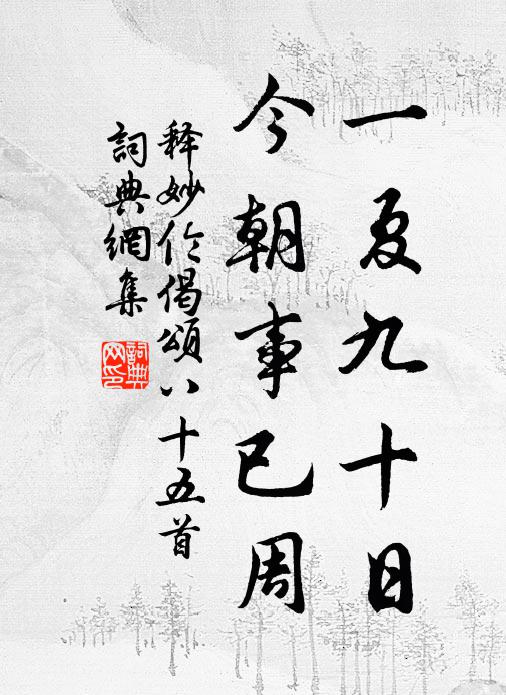 一夏九十日
今朝事已周
释妙伦偈頌八十五首
詞典網集
詞典網印